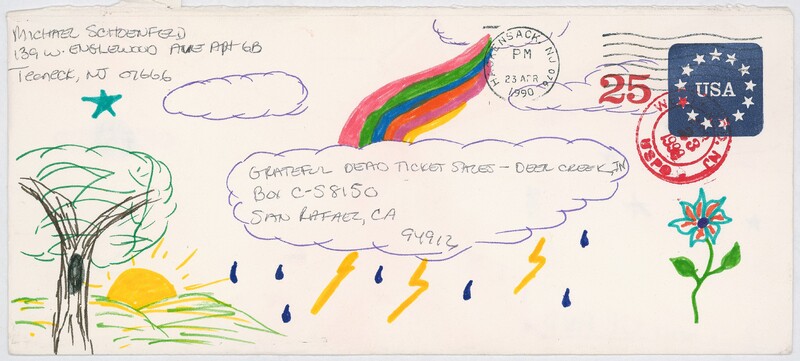 MICHAEL SCHOENFELD
139 W. ENGLEWOOD AVE APT 6B
TEANECK, NJ 07666
HACKENSACK, NJ 076
PM
23 APR
1990
25
USA
USPO
GRATEFUL DEAD TICKET SALES - DEER CREEK, IN
BOX C-S8150
SAN RAFAEL, CA
94912